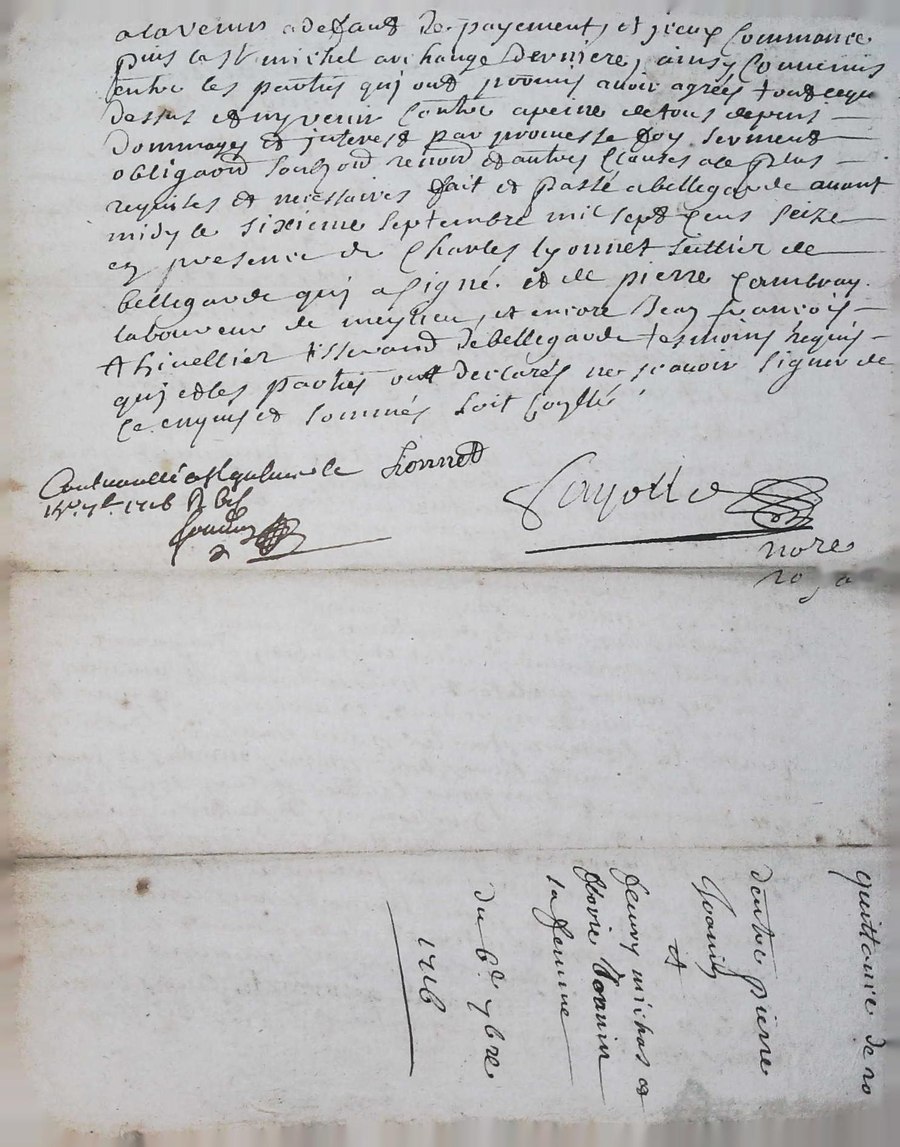 alavenir a defaud de payement, et jceux Commance
puis la St michel archange derniere, ainsy Convenus
entre les parties quj ond promis avoir agreés toud cequ
dessus et ny venir Contre apeine de tous depens
Dommages et jnterest par promesse foy serment
obligaon renon et autres Clauses ale plus
requises et necessaires fait et passé a bellegarde avant
midy le sixieme septembre mil sept cens seize
en presence de Charles lyonnet sellier de
bellegarde quj a signé et de pierre Cambray
laboureur de meylieu, et encore Jean françois
thivellier tisserand de bellegarde tesmoins requis
quj et les parties ont declarés ne scavoir signer de
Ce enquis et sommés soit
Contrerollé a St galmier le
7bre 1716
Lionnet
nore
royal
quittance de 20
dentre pierre
et
michas et
sa femme
du 6e 7bre
1716